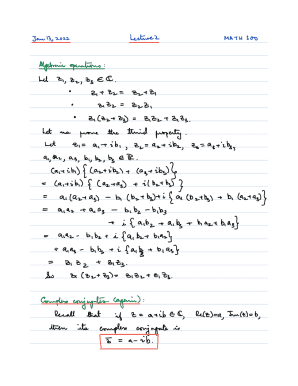 Jan 13, 2022 Lecture 2 MATH 300
Algebraic operations:
Let z₁, z₂, z₃ ∈ ℂ.
• z₁ + z₂ = z₂ + z₁
• z₁z₂ = z₂z₁
• z₁(z₂+z₃) = z₁z₂ + z₁z₃.
Let me prove the third property.
Let z₁ = a₁ + ib₁, z₂ = a₂ + ib₂, z₃ = a₃ + ib₃,
a₁, a₂, a₃, b₁, b₂, b₃ ∈ ℝ.
(a₁+ib₁) { (a₂+ib₂) + (a₃+ib₃) }
= (a₁+ib₁) { (a₂+a₃) + i(b₂+b₃) }
= a₁(a₂+a₃) - b₁(b₂+b₃) + i { a₁(b₂+b₃) + b₁(a₂+a₃) }
= a₁a₂ + a₁a₃ - b₁b₂ - b₁b₃
+ i { a₁b₂ + a₁b₃ + b₁a₂ + b₁a₃ }
= a₁a₂ - b₁b₂ + i { a₁b₂ + b₁a₂ }
+ a₁a₃ - b₁b₃ + i { a₁b₃ + b₁a₃ }
= z₁z₂ + z₁z₃.
So z₁(z₂+z₃) = z₁z₂ + z₁z₃.
Complex conjugates (again):
Recall that if z = a+ib ∈ ℂ, Re(z)=a, Im(z)=b,
then its complex conjugate is
z̄ = a - ib.